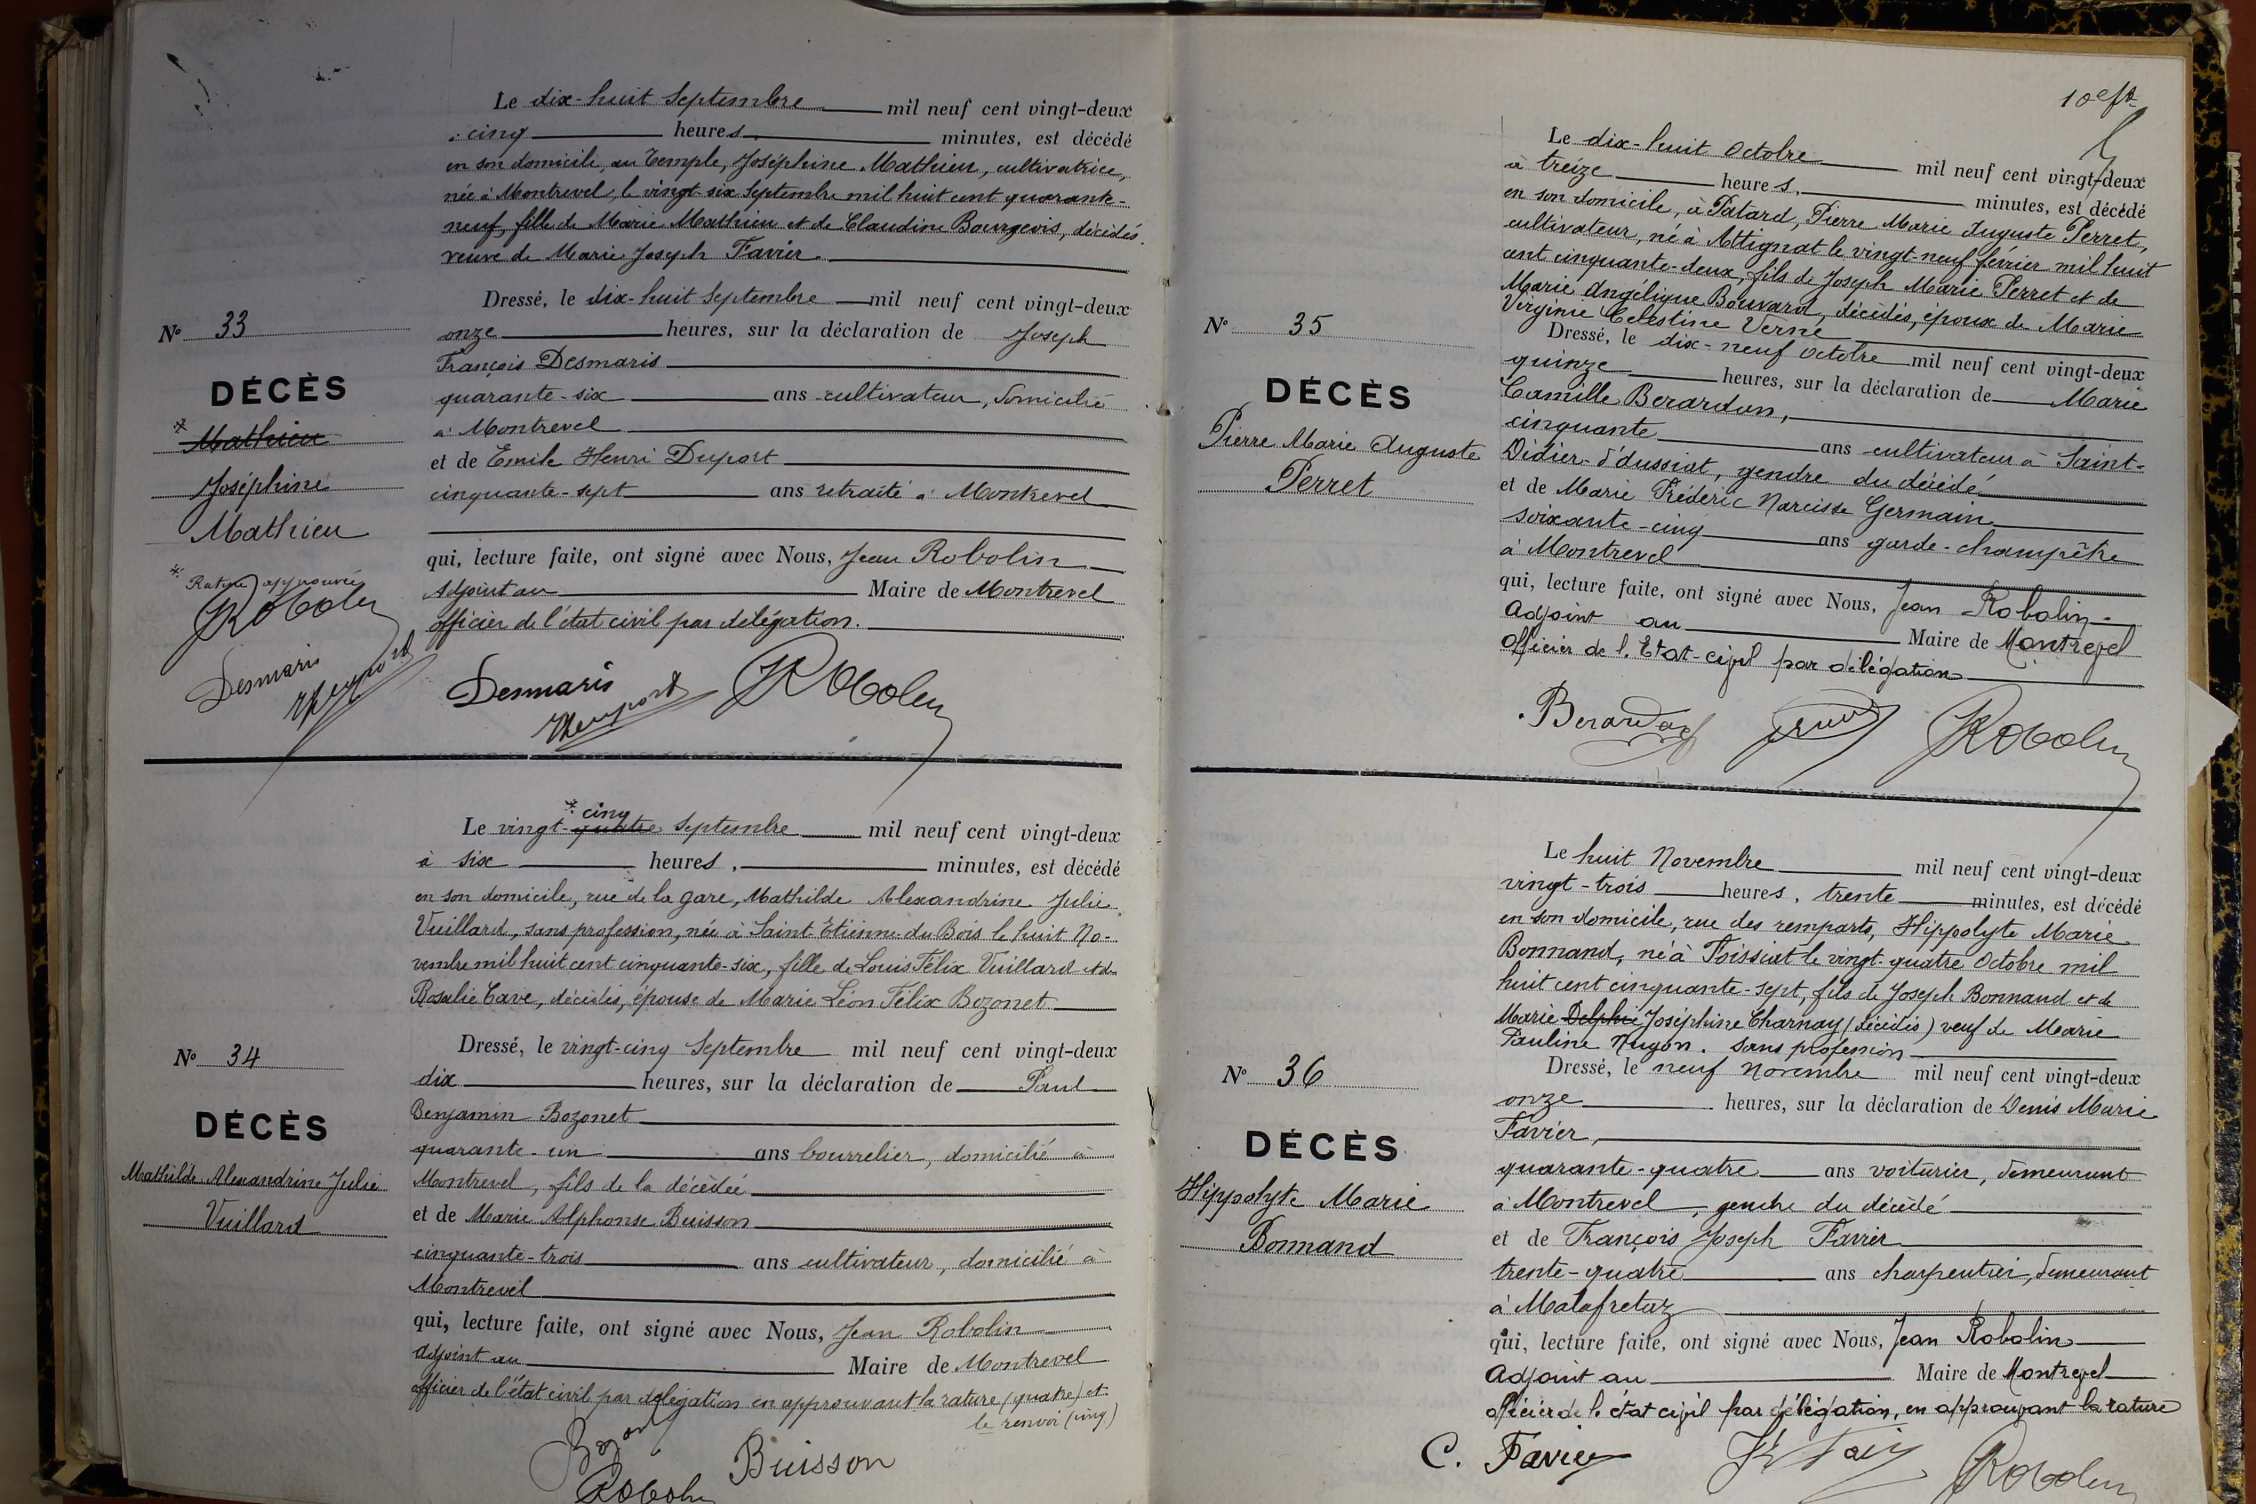 Le dix-huit Septembre mil neuf cent vingt-deux
cinq heures minutes, est décédé
en son domicile, au Temple, Joséphine Mathieu, cultivatrice,
née à Montrevel, le vingt-six Septembre mil huit cent quarante-
neuf, fille de Marie Mathieu et de Claudine Bourgeois, décédés.
veuve de Marie Joseph Favier.
Dressé, le dix-huit Septembre mil neuf cent vingt-deux
onze heures, sur la déclaration de Joseph
François Desmaris
quarante-six ans cultivateur, domicilié
à Montrevel
et de Emile Henri Duport
cinquante-sept ans retraité à Montrevel
qui, lecture faite, ont signé avec Nous, Jean Robolin
Adjoint au Maire de Montrevel
officier de l'état civil par délégation.
Desmaris
Robolin
N° 33
DÉCÈS
* Mathieu
Joséphine
Mathieu
* Rature approuvée
Robolin
Desmaris
Le vingt-quatre * cinq Septembre mil neuf cent vingt-deux
à six heures, minutes, est décédé
en son domicile, rue de la gare, Mathilde Alexandrine Julie
Vuillard, sans profession, née à Saint-Etienne-du-Bois le huit No-
vembre mil huit cent cinquante-six, fille de Louis Félix Vuillard et de
Rosalie Cave, décédés, épouse de Marie Léon Félix Bozonet
Dressé, le vingt-cinq Septembre mil neuf cent vingt-deux
dix heures, sur la déclaration de Paul
Benjamin Bozonet
quarante-un ans bourrelier, domicilié à
Montrevel, fils de la décédée
et de Marie Alphonse Buisson
cinquante-trois ans cultivateur, domicilié à
Montrevel
qui, lecture faite, ont signé avec Nous, Jean Robolin
adjoint au Maire de Montrevel
officier de l'état civil par délégation en approuvant la rature (quatre) et
le renvoi (cinq)
Buisson
Robolin
N° 34
DÉCÈS
Mathilde Alexandrine Julie
Vuillard
Le dix-huit Octobre mil neuf cent vingt-deux
à treize heures, minutes, est décédé
en son domicile, à Patard, Pierre Marie Auguste Perret,
cultivateur, né à Attignat le vingt-neuf février mil huit
cent cinquante-deux, fils de Joseph Marie Perret et de
Marie Angélique Bouvard, décédés, époux de Marie
Virginie Célestine Verne
Dressé, le dix-neuf Octobre mil neuf cent vingt-deux
quinze heures, sur la déclaration de Marie
Camille Berardan,
cinquante ans cultivateur à Saint-
Didier-d'Aussiat, gendre du décédé
et de Marie Frédéric Narcisse Germain
soixante-cinq ans garde-champêtre
à Montrevel
qui, lecture faite, ont signé avec Nous, Jean Robolin
Adjoint au Maire de Montrevel
Officier de l'Etat-civil par délégation
Berardan
Robolin
N° 35
DÉCÈS
Pierre Marie Auguste
Perret
Le huit Novembre mil neuf cent vingt-deux
vingt-trois heures, trente minutes, est décédé
en son domicile, rue des remparts, Hippolyte Marie
Bonnand, né à Foissiat le vingt-quatre Octobre mil
huit cent cinquante-sept, fils de Joseph Bonnand et de
Marie Delphie Joséphine Charnay (décédés) veuf de Marie
Pauline Nugon. sans profession
Dressé, le neuf Novembre mil neuf cent vingt-deux
onze heures, sur la déclaration de Denis Marie
Favier,
quarante-quatre ans voiturier, demeurant
à Montrevel, gendre du décédé
et de François Joseph Favier
trente-quatre ans charpentier, demeurant
à Malafretaz
qui, lecture faite, ont signé avec Nous, Jean Robolin
Adjoint au Maire de Montrevel
officier de l'état civil par délégation, en approuvant la rature
C. Favier
Robolin
N° 36
DÉCÈS
Hippolyte Marie
Bonnand